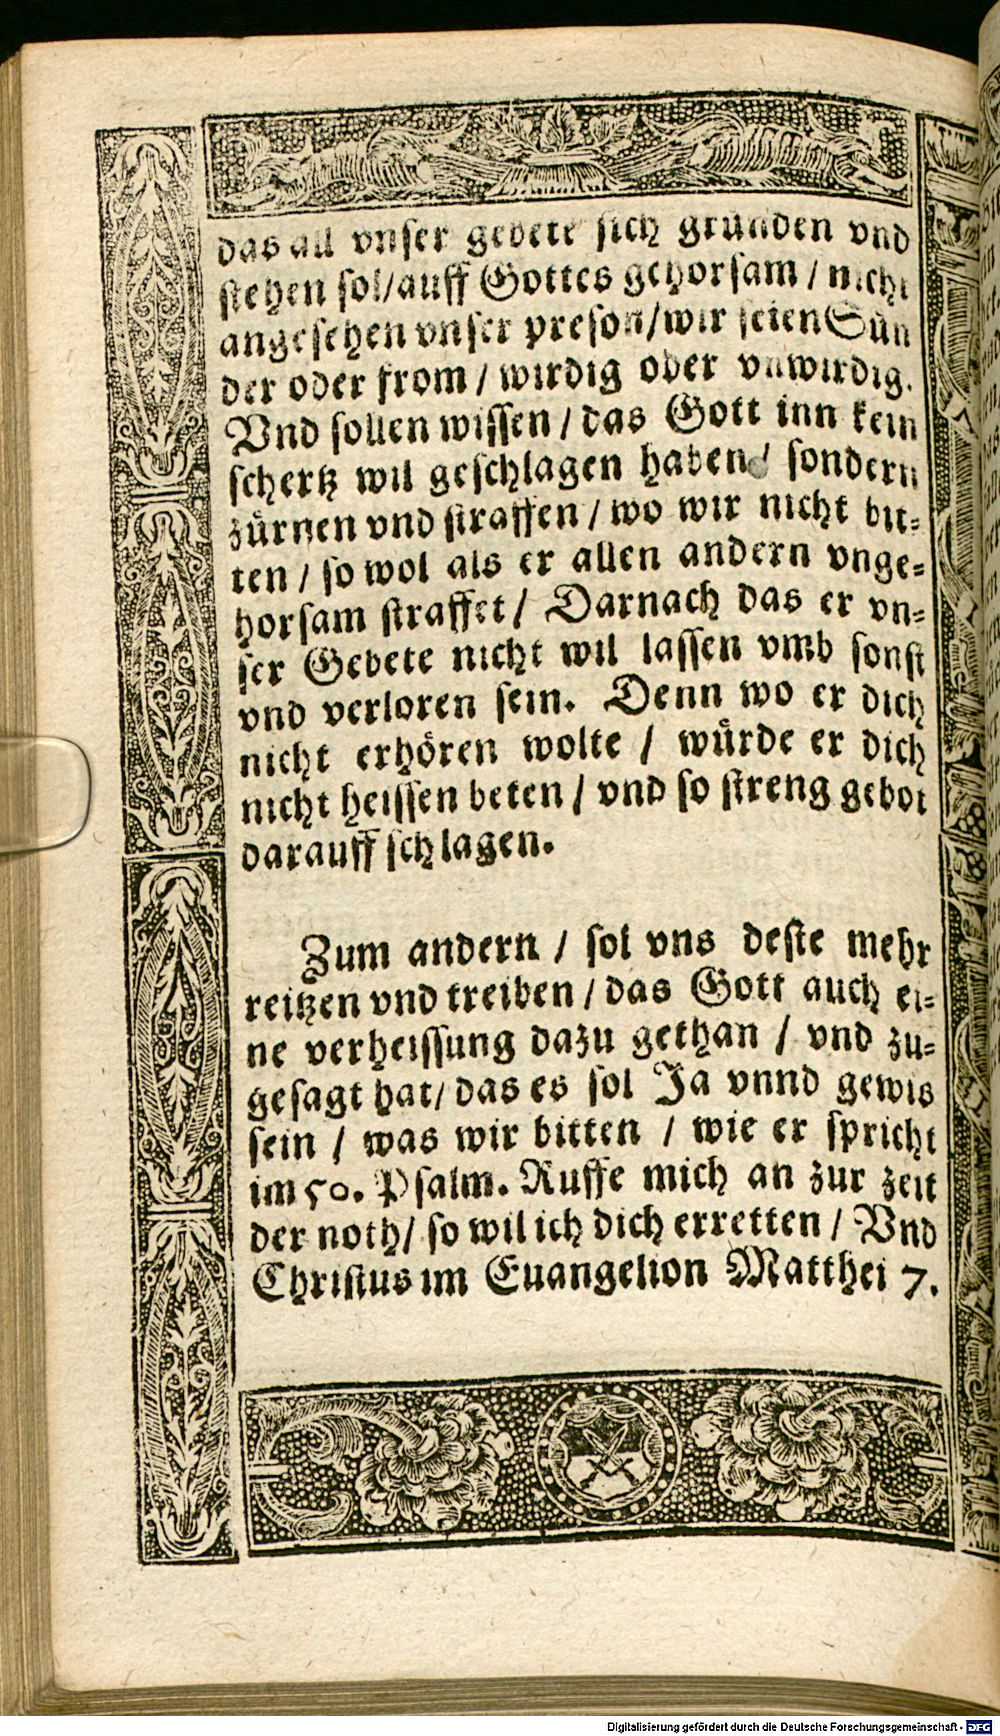 das all vnser gebete sich gründen vnd
stehen sol/auff Gottes gehorsam / nicht
angesehen vnser preson/wir seien Sün
der oder from / wirdig oder vnwirdig.
Vnd sollen wissen / das Gott inn kein
schertz wil geschlagen haben / sondern
zürnen vnd straffen / wo wir nicht bit⸗
ten / so wol als er allen andern vnge⸗
horsam straffet / Darnach das er vn⸗
ser Gebete nicht wil lassen vmb sonst
vnd verloren sein. Denn wo er dich
nicht erhören wolte / würde er dich
nicht heissen beten / vnd so streng gebot
darauff schlagen.
Zum andern / sol vns deste mehr
reitzen vnd treiben / das Gott auch ei⸗
ne verheissung dazu gethan / vnd zu⸗
gesagt hat/ das es sol Ja vnnd gewis
sein / was wir bitten / wie er spricht
im 50. Psalm. Ruffe mich an zur zeit
der noth/ so wil ich dich erretten / Vnd
Christus im Euangelion Matthei 7.
Digitalisierung gefördert durch die Deutsche Forschungsgemeinschaft - DFG